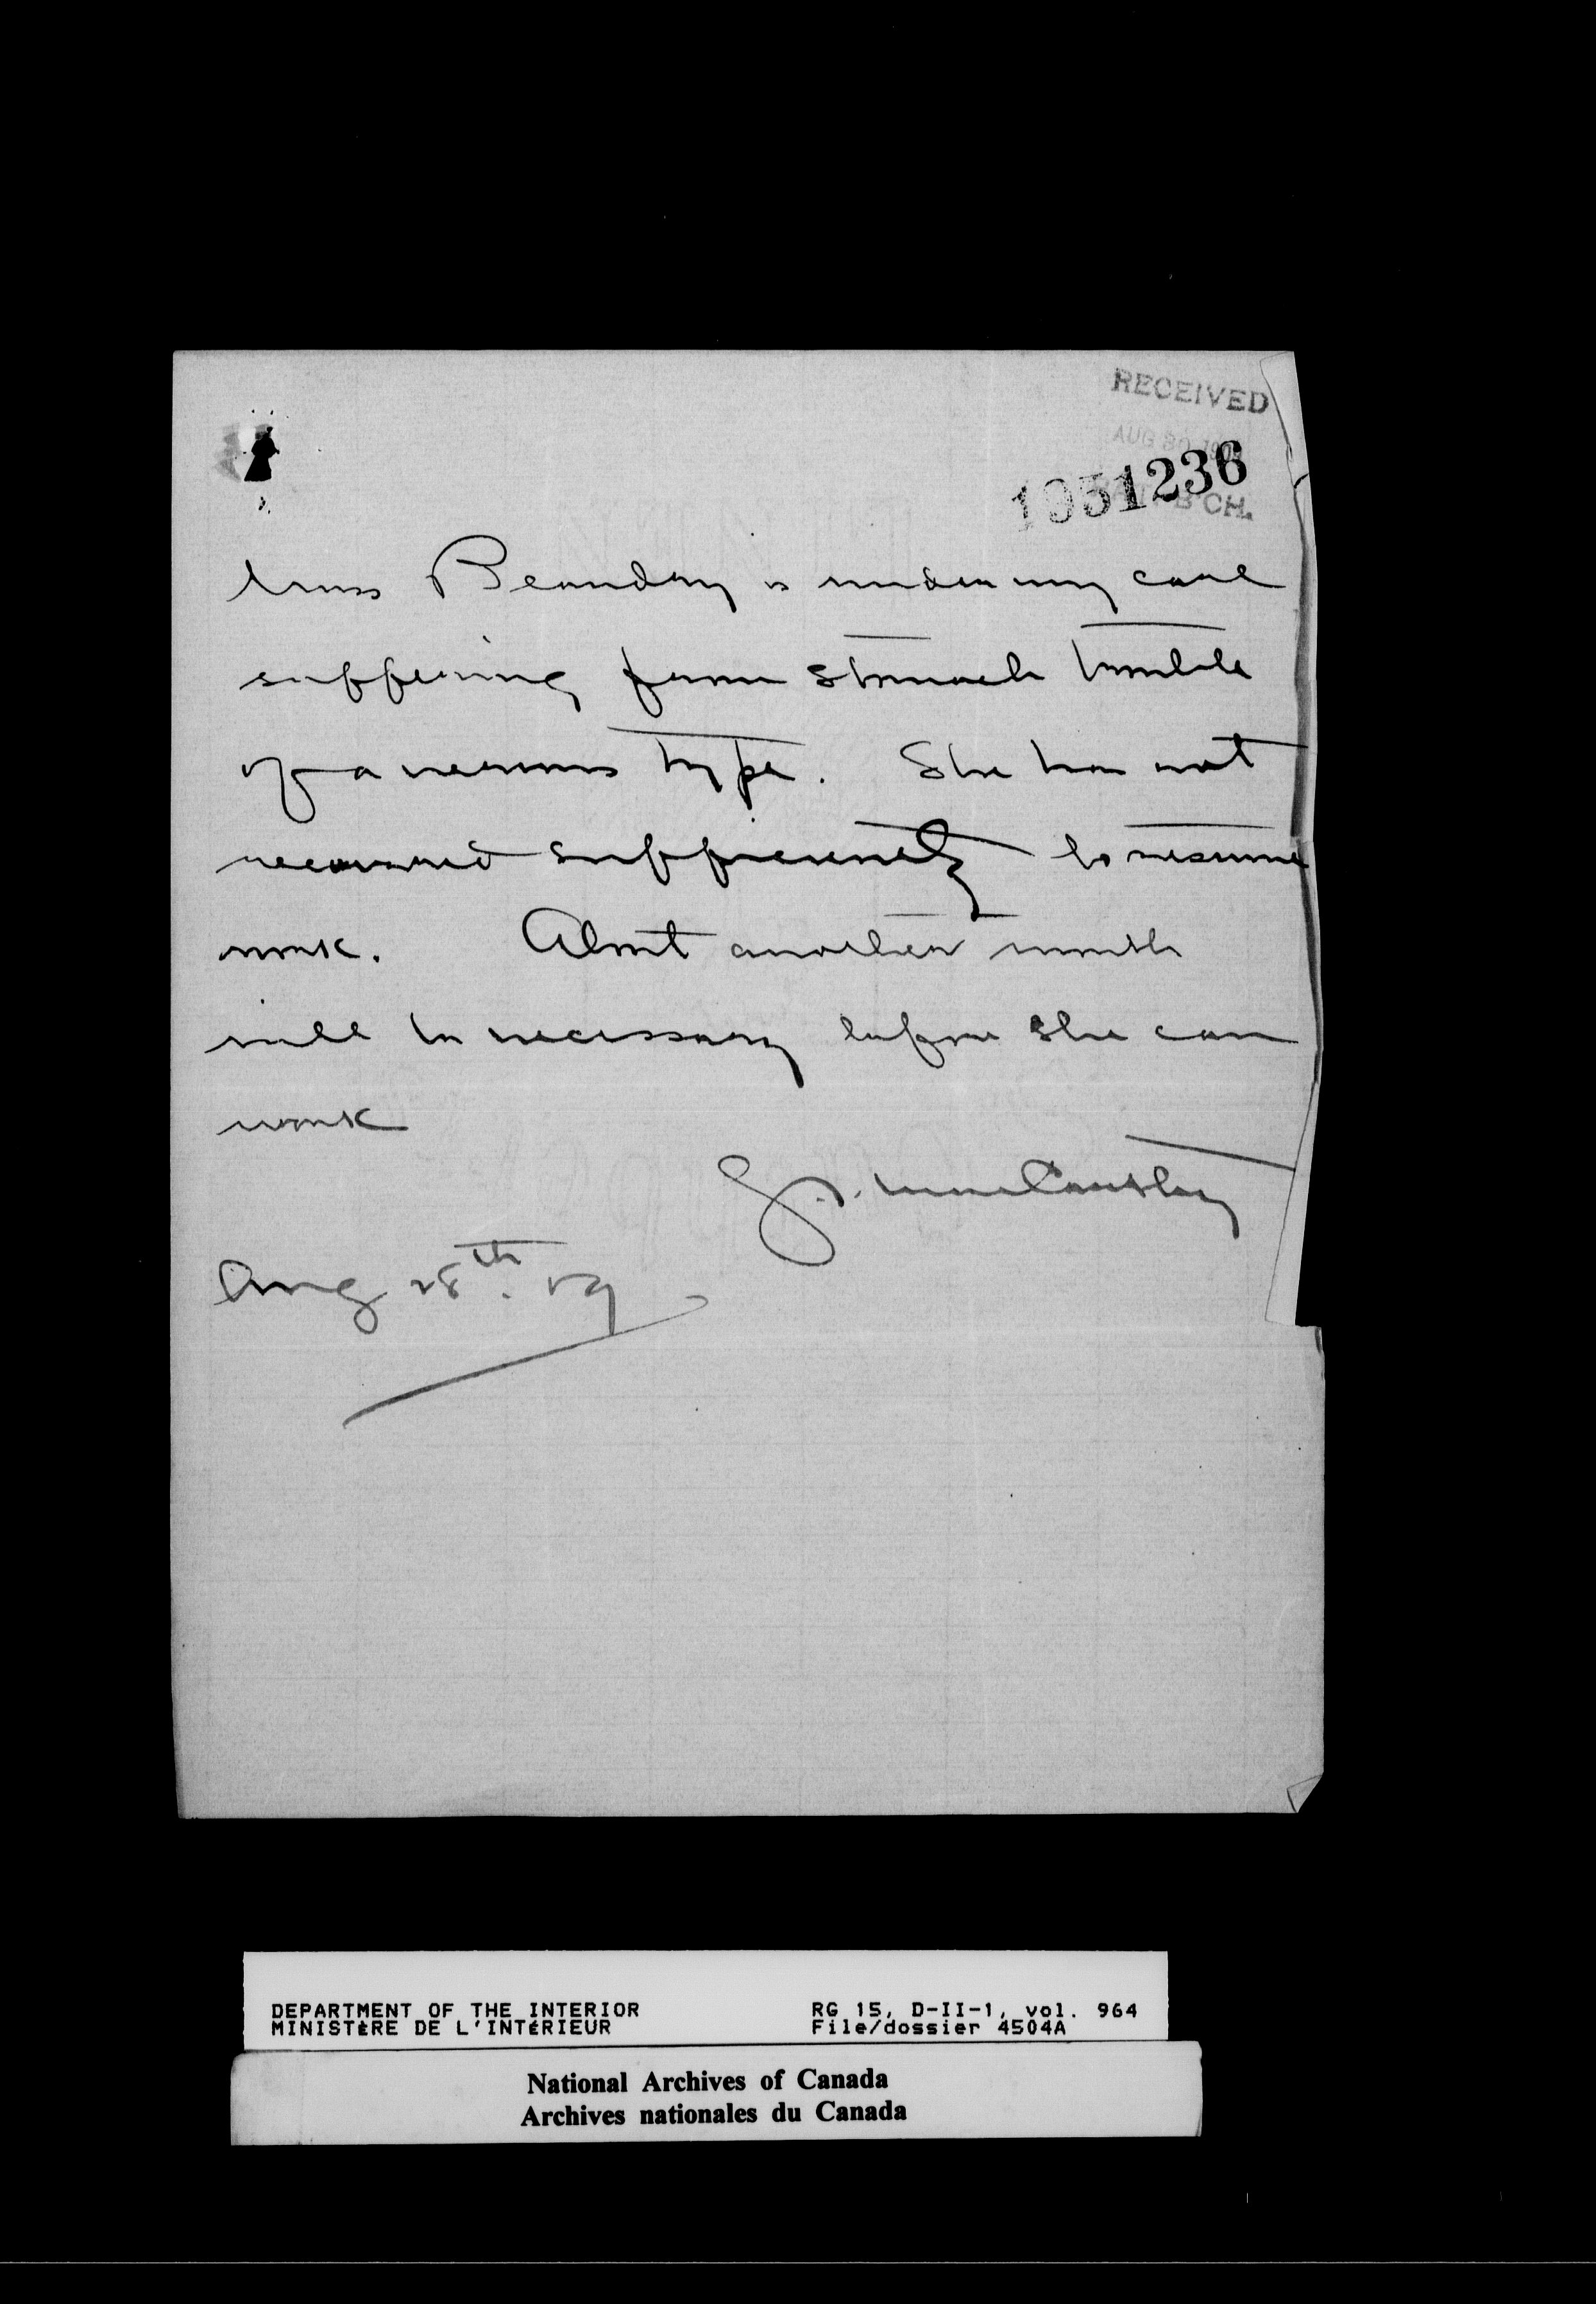 RECEIVED
AUG 30 1909
1951236
B'CH.
Miss Beaudry is under my care
suffering from stomach trouble
of a nervous type. She has not
recovered sufficiently to resume
work. About another month
will be necessary before she can
work
MacCarthy
Aug 28th. 09
DEPARTMENT OF THE INTERIOR RG 15, D-II-1, vol. 964
MINISTÈRE DE L'INTÉRIEUR File/dossier 4504A
National Archives of Canada
Archives nationales du Canada